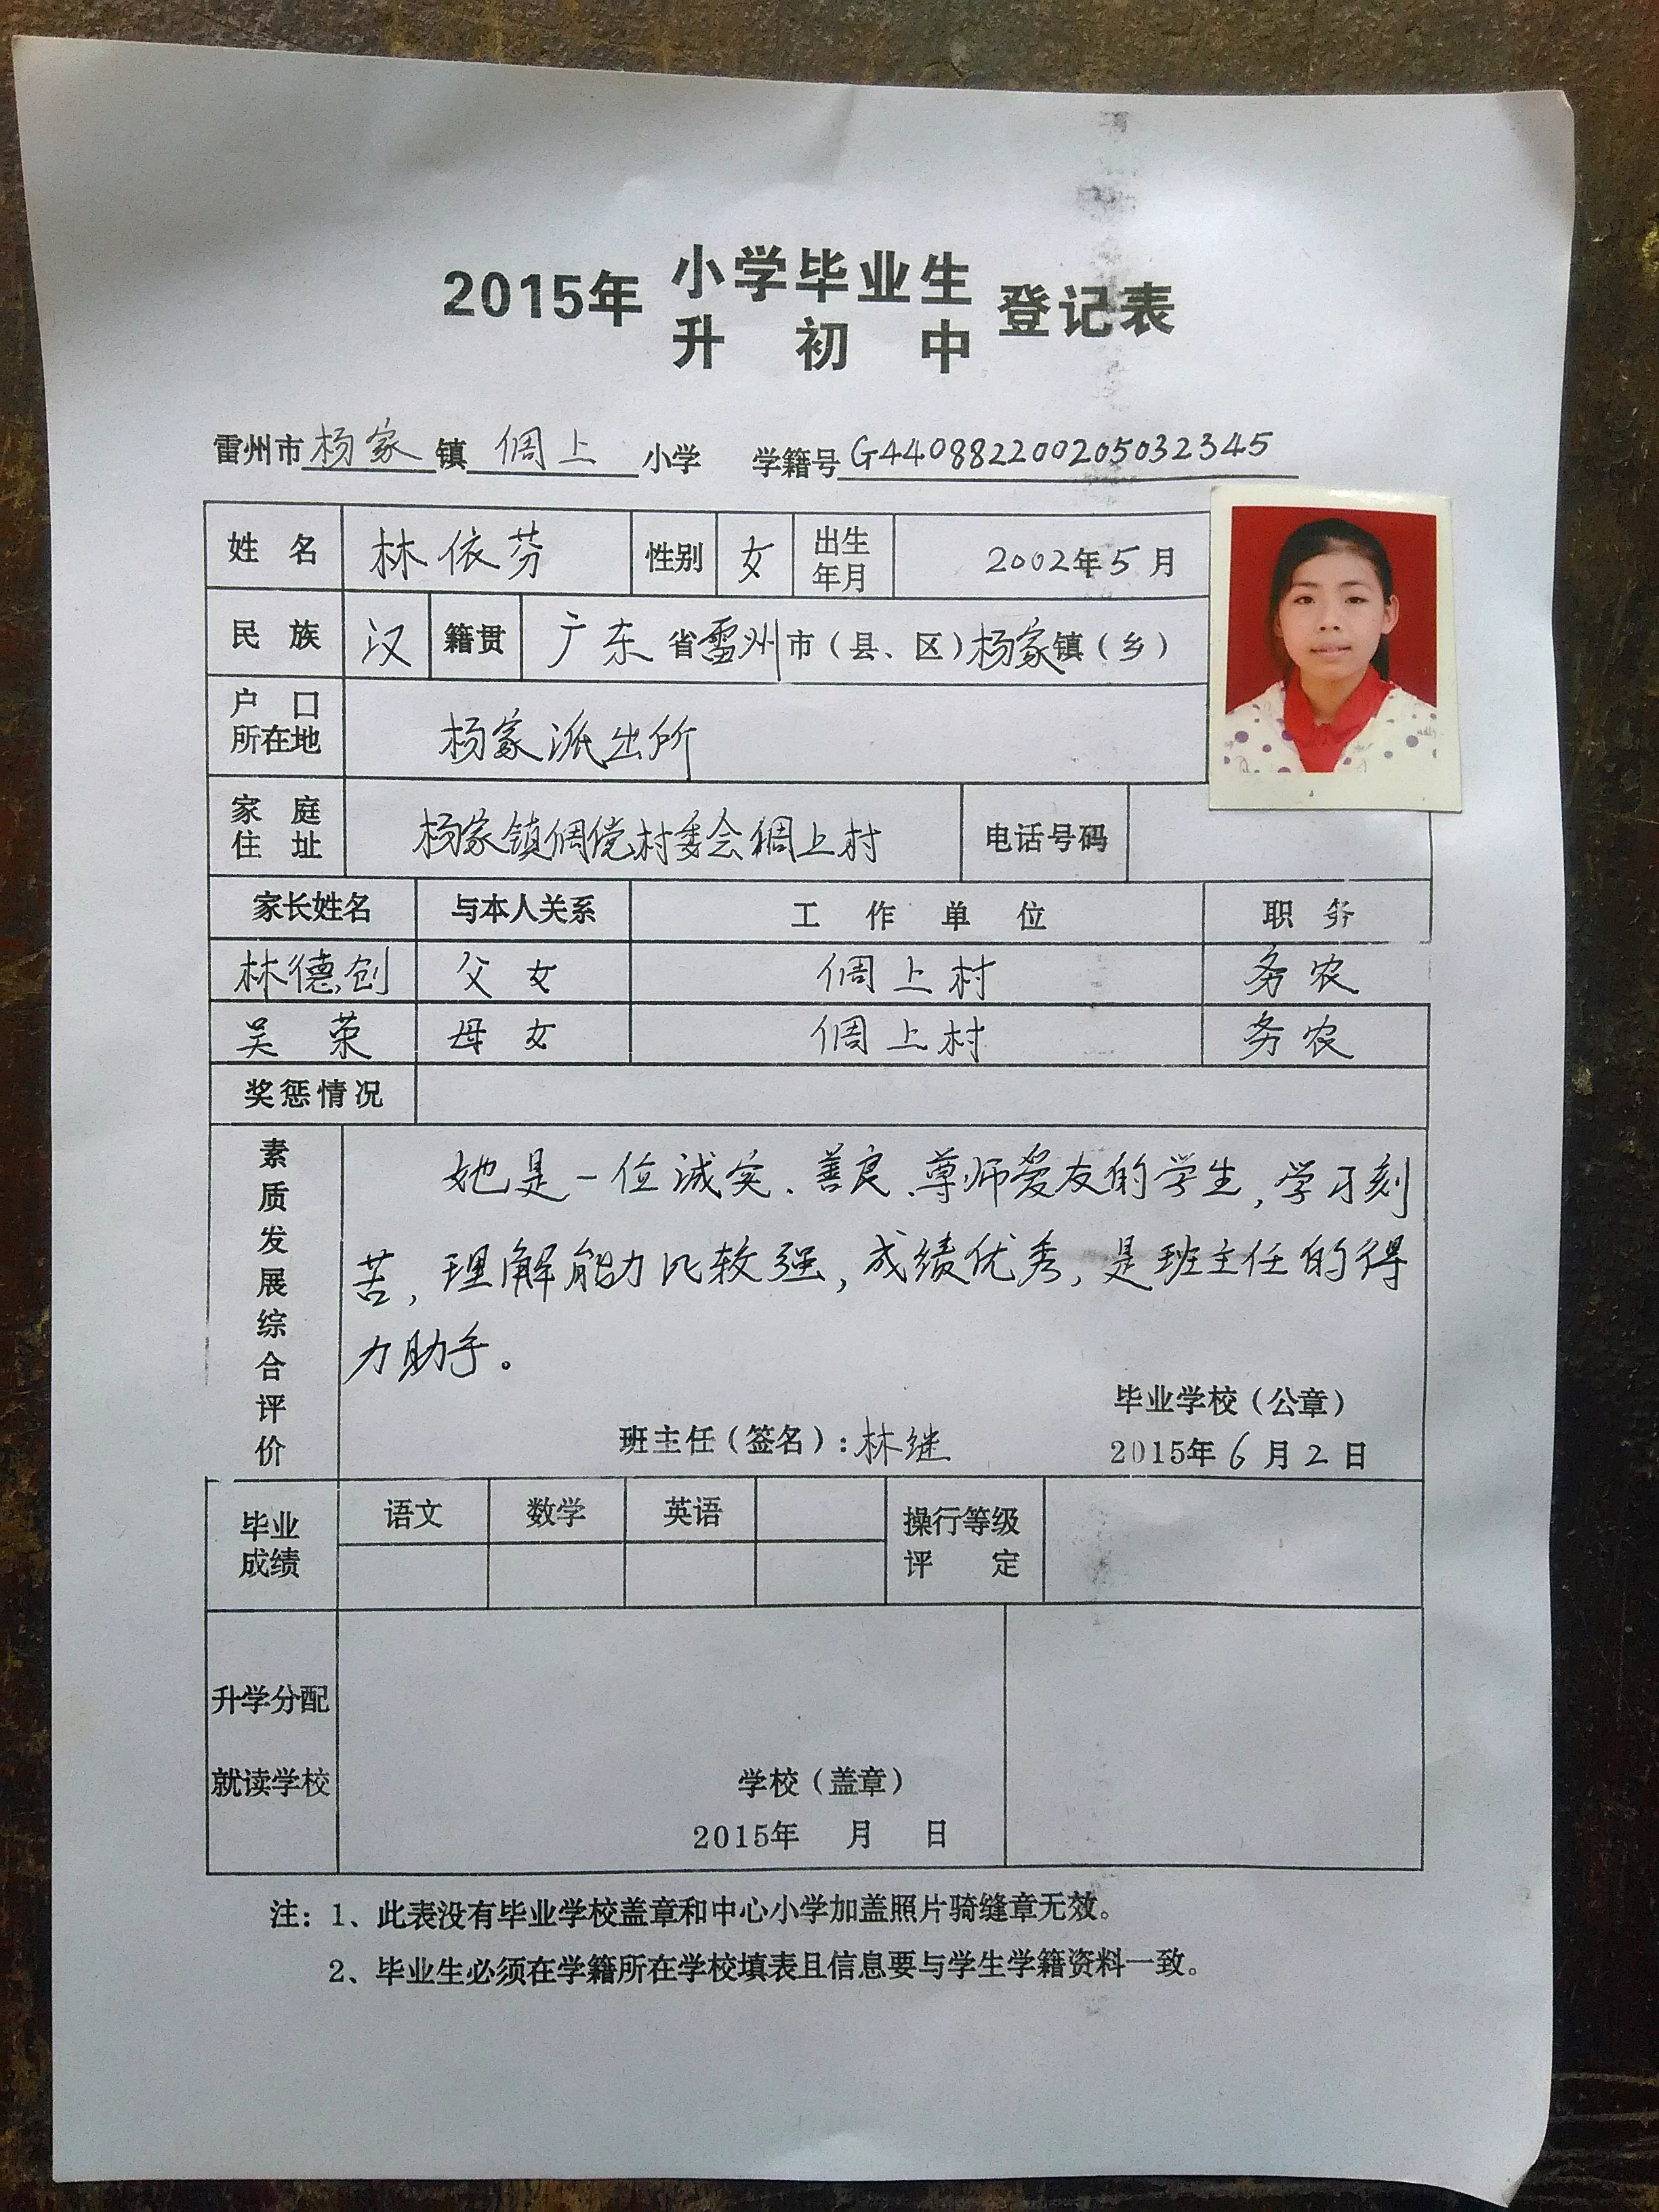 2015年 小学毕业生 登记表
升初中
雷州市杨家镇倜上小学 学籍号G440882200205032345
姓名 林依芬 性别 女 出生年月 2002年5月
民族 汉 籍贯 广东省雷州市(县、区)杨家镇(乡)
户口所在地 杨家派出所
家庭住址 杨家镇倜傥村委会倜上村 电话号码
家长姓名 与本人关系 工作单位 职务
林德创 父女 倜上村 务农
吴荣 母女 倜上村 务农
奖惩情况
素质发展综合评价
她是一位诚实、善良、尊师爱友的学生,学习刻
苦,理解能力比较强,成绩优秀,是班主任的得
力助手。
毕业学校(公章)
班主任(签名):林继 2015年6月2日
毕业成绩 语文 数学 英语 操行等级评定
升学分配
就读学校 学校(盖章)
2015年 月 日
注:1、此表没有毕业学校盖章和中心小学加盖照片骑缝章无效。
2、毕业生必须在学籍所在学校填表且信息要与学生学籍资料一致。